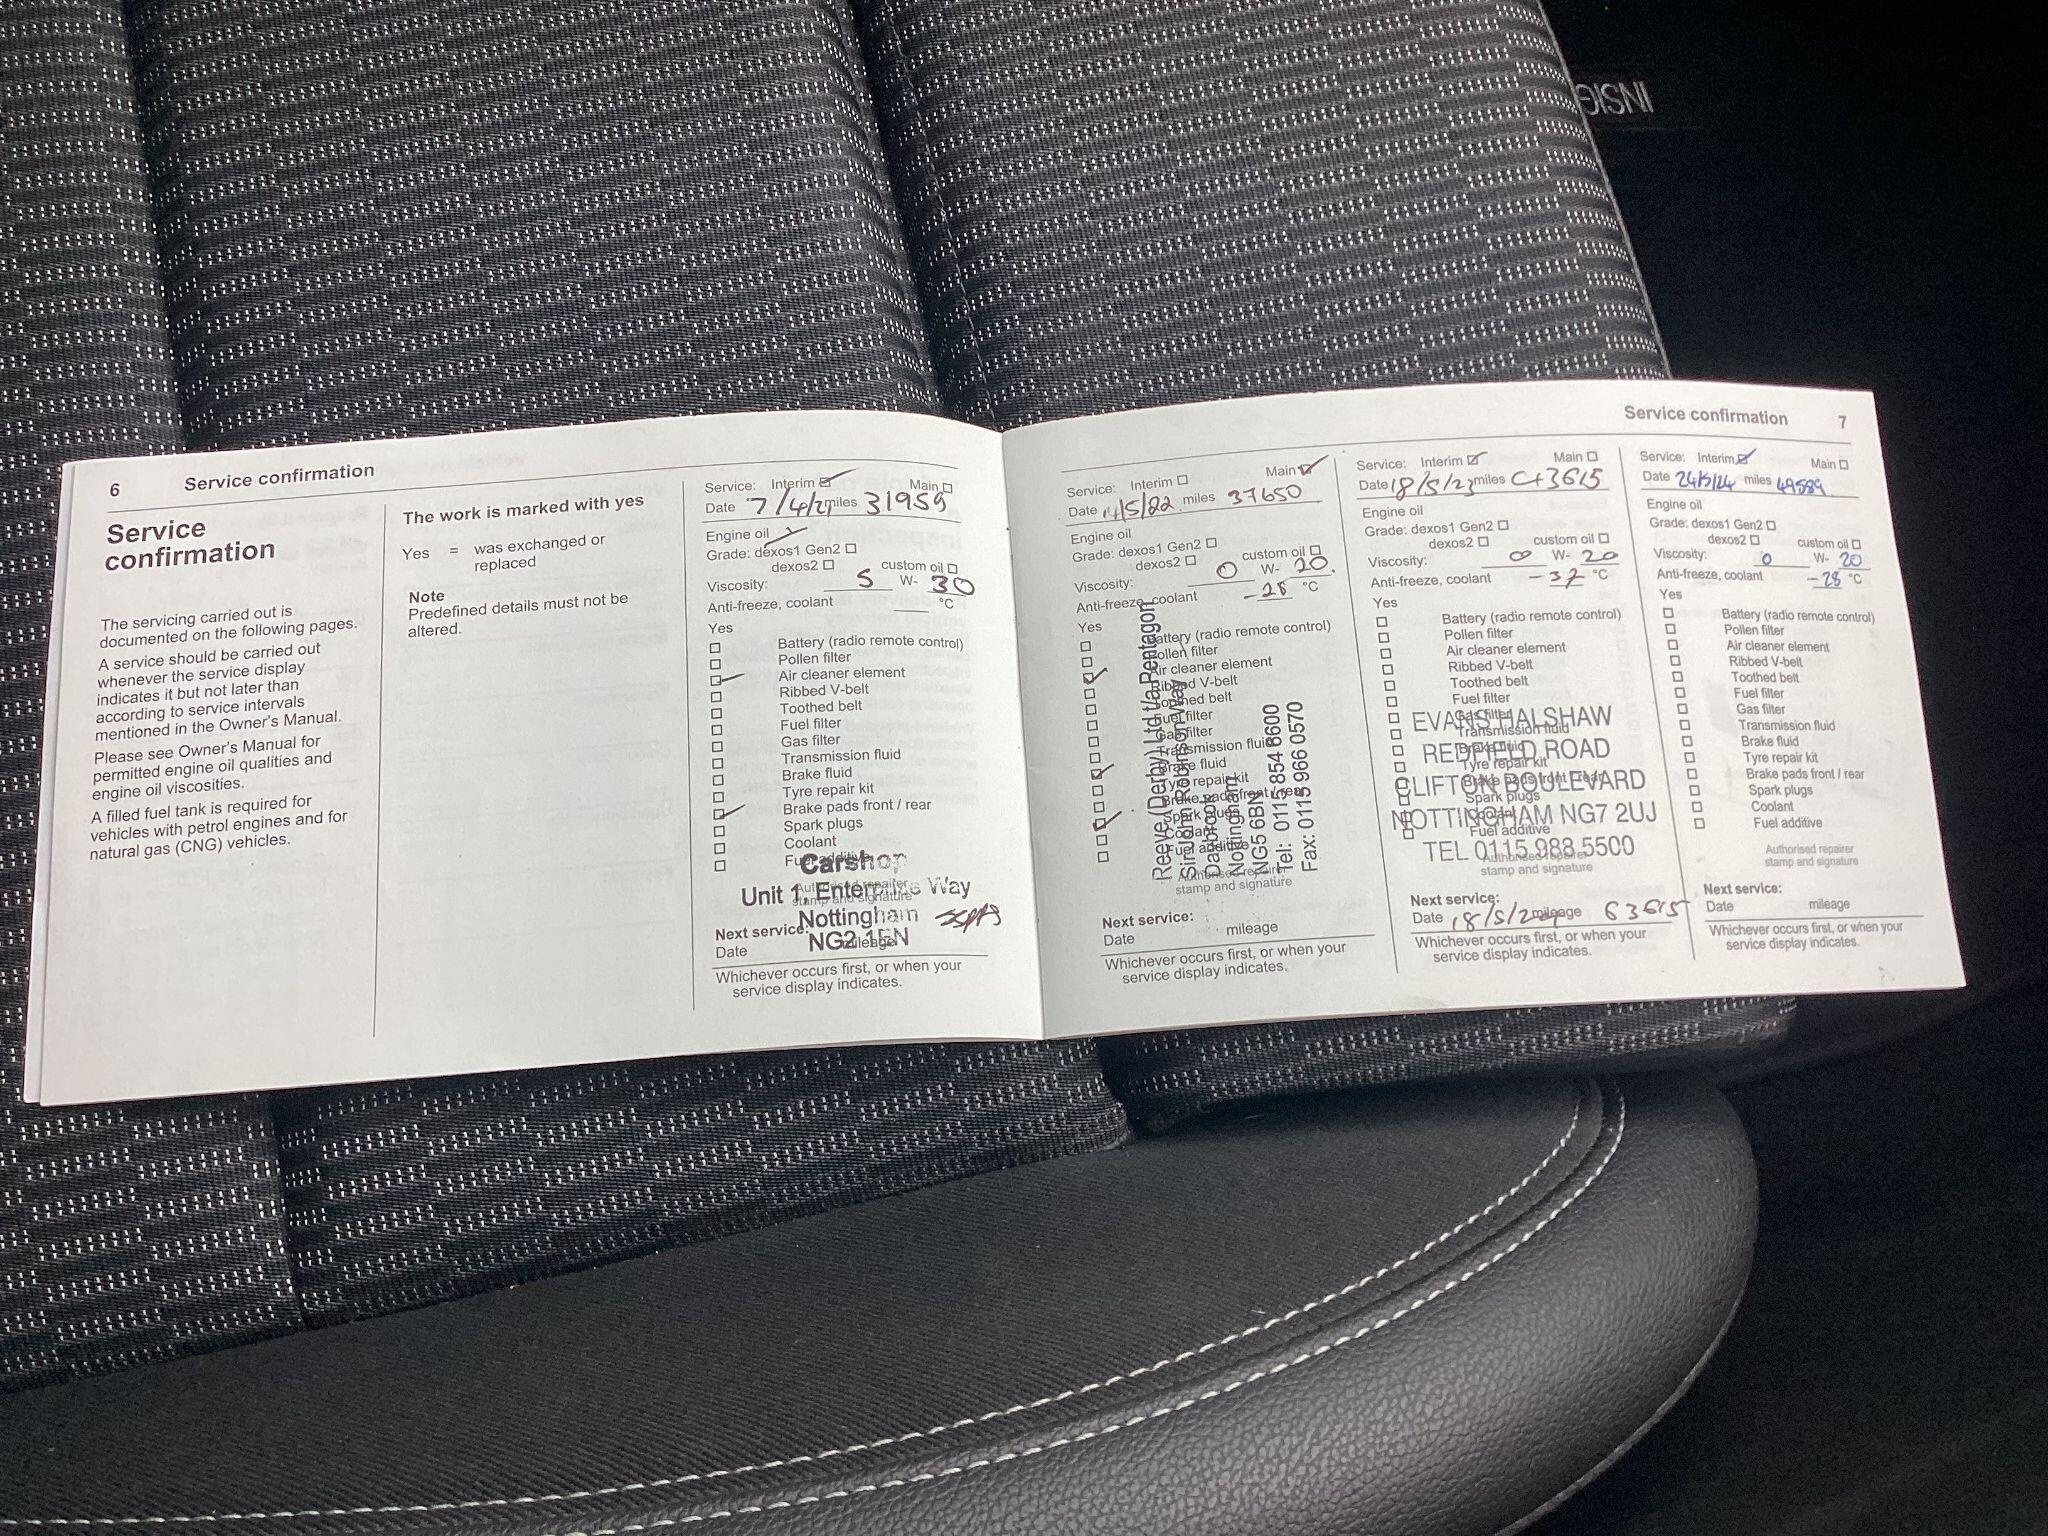 INSIG
6 Service confirmation
Service
confirmation
The servicing carried out is
documented on the following pages.
A service should be carried out
whenever the service display
indicates it but not later than
according to service intervals
mentioned in the Owner's Manual.
Please see Owner's Manual for
permitted engine oil qualities and
engine oil viscosities.
A filled fuel tank is required for
vehicles with petrol engines and for
natural gas (CNG) vehicles.
The work is marked with yes
Yes = was exchanged or
replaced
Note
Predefined details must not be
altered.
Service: Interim Main
Date 7/4/21 miles 31959
Engine oil
Grade: dexos1 Gen2
dexos2 custom oil
Viscosity: 5 W- 30
Anti-freeze, coolant °C
Yes
Battery (radio remote control)
Pollen filter
Air cleaner element
Ribbed V-belt
Toothed belt
Fuel filter
Gas filter
Transmission fluid
Brake fluid
Tyre repair kit
Brake pads front / rear
Spark plugs
Coolant
Fuel additive
Authorised repairer
stamp and signature
Carshop
Unit 1, Enterprise Way
Nottingham
NG2 1EN
Next service:
Date mileage
Whichever occurs first, or when your
service display indicates.
Service confirmation 7
Service: Interim Main
Date 14/5/22 miles 37650
Engine oil
Grade: dexos1 Gen2
dexos2 custom oil
Viscosity: 0 W- 20
Anti-freeze, coolant -28 °C
Yes
Battery (radio remote control)
Pollen filter
Air cleaner element
Ribbed V-belt
Toothed belt
Fuel filter
Gas filter
Transmission fluid
Brake fluid
Tyre repair kit
Brake pads front / rear
Spark plugs
Coolant
Fuel additive
Authorised repairer
stamp and signature
Reeve (Derby) Ltd t/a Pentagon
Sir John Robinson Way
Daybrook
Nottingham
NG5 6BN
Tel: 0115 854 8600
Fax: 0115 966 0570
Next service:
Date mileage
Whichever occurs first, or when your
service display indicates.
Service: Interim Main
Date 18/5/23 miles 43615
Engine oil
Grade: dexos1 Gen2
dexos2 custom oil
Viscosity: 0 W- 20
Anti-freeze, coolant -37 °C
Yes
Battery (radio remote control)
Pollen filter
Air cleaner element
Ribbed V-belt
Toothed belt
Fuel filter
Gas filter
Transmission fluid
Brake fluid
Tyre repair kit
Brake pads front / rear
Spark plugs
Coolant
Fuel additive
Authorised repairer
stamp and signature
EVANS HALSHAW
REDFIELD ROAD
CLIFTON BOULEVARD
NOTTINGHAM NG7 2UJ
TEL 0115 988 5500
Next service:
Date 18/5/24 mileage 63615
Whichever occurs first, or when your
service display indicates.
Service: Interim Main
Date 24/5/24 miles 49589
Engine oil
Grade: dexos1 Gen2
dexos2 custom oil
Viscosity: 0 W- 20
Anti-freeze, coolant -28 °C
Yes
Battery (radio remote control)
Pollen filter
Air cleaner element
Ribbed V-belt
Toothed belt
Fuel filter
Gas filter
Transmission fluid
Brake fluid
Tyre repair kit
Brake pads front / rear
Spark plugs
Coolant
Fuel additive
Authorised repairer
stamp and signature
Next service:
Date mileage
Whichever occurs first, or when your
service display indicates.